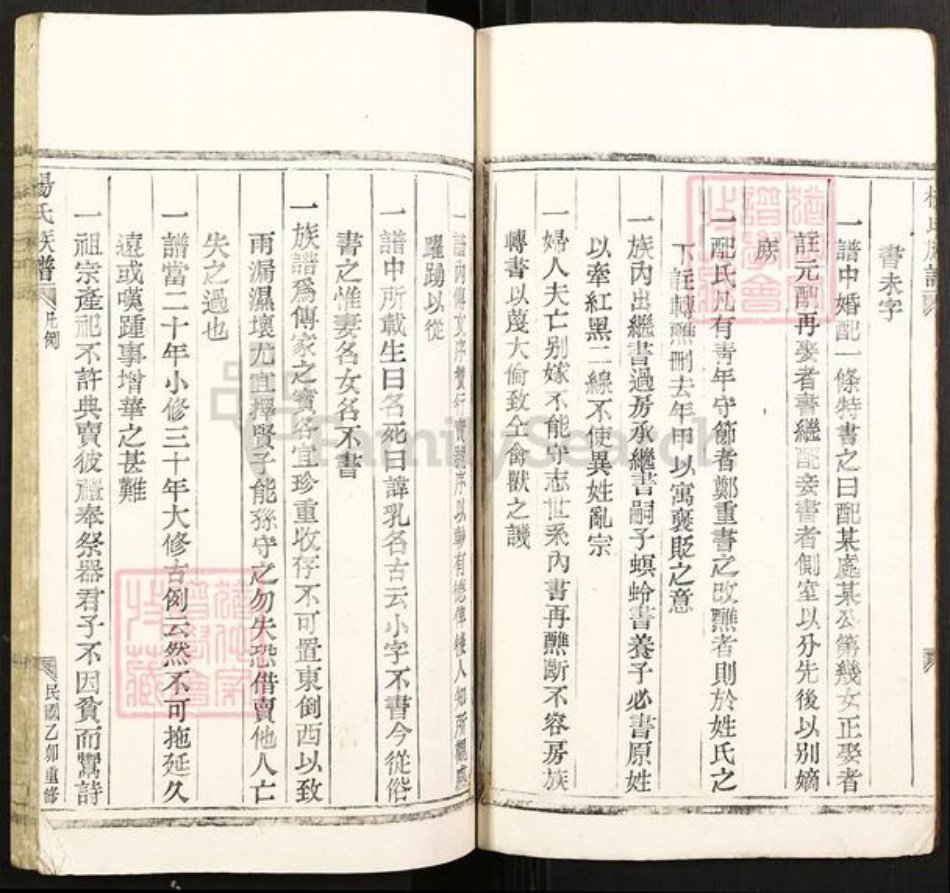 書未字
一譜中婚配一條特書之曰配某處某公第幾女正娶者
註元配再娶者書繼配妾書者側室以分先後以别嫡
族
一配氏凡有青年守節者鄭重書之改醮者則於姓氏之
下註轉醮刪去年甲以寓褒貶之意
一族内出繼書過房承繼書嗣子螟蛉書養子必書原姓
以牽紅黑二線不使異姓亂宗
一婦人夫亡别嫁不能守志世系内書再醮斷不容房族
轉書以蔑大倫致仝禽獸之譏
一譜内傳文序贊行實壽序以載有德俾後人知所觀感
躍踴以從
一譜中所載生曰名死曰諱乳名古云小字不書今從俗
書之惟妻名女名不書
一族譜為傳家之寶各宜珍重收存不可置東倒西以致
雨漏濕壞尤宜擇賢子能孫守之勿失恐借賣他人亡
失之過也
一譜當二十年小修三十年大修古例云然不可拖延久
遠或嘆踵事增華之甚難
一祖宗產祀不許典賣彼禮奉祭器君子不因貧而鬻詩
楊氏族譜 凡例 民國乙卯重修
FamilySearch